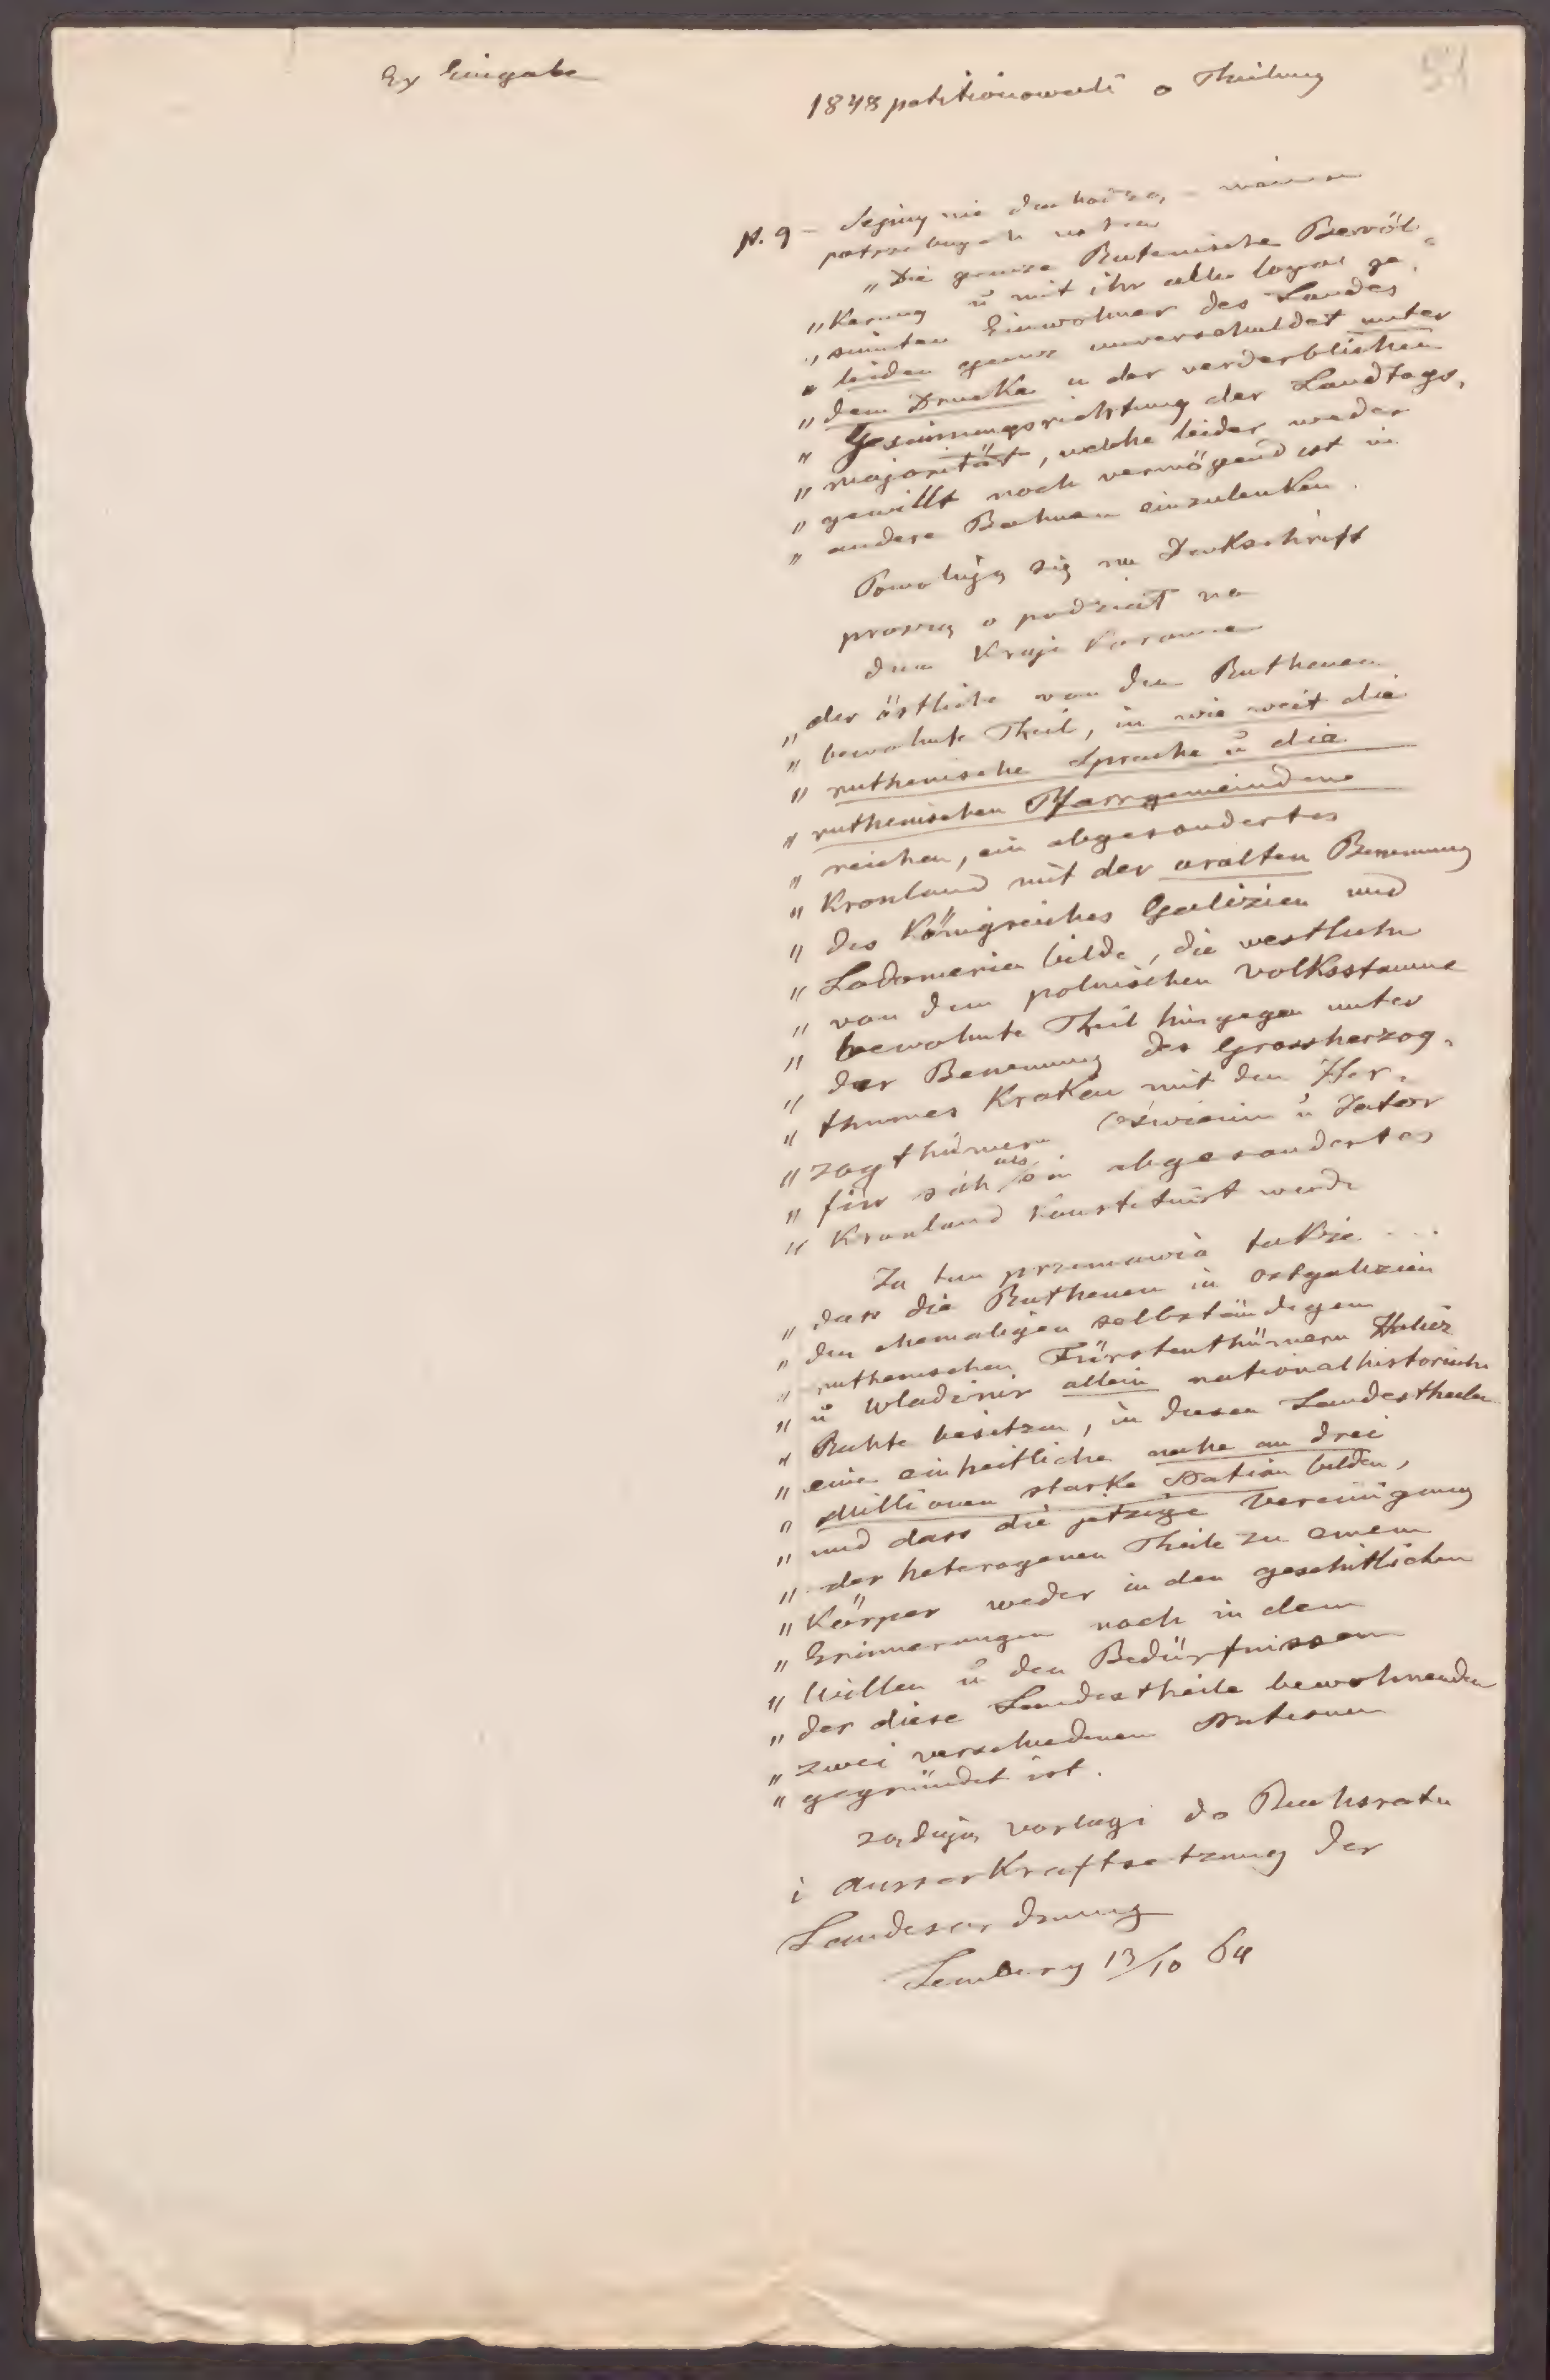 Ex Eingabe
51
1848 petitionowali o Theilung
p. 9 – Sejmy nie dochodzą –
potrzebnych ustaw
„Die ganze Rutenische Bevöl-
„kerung u mit ihr alle loyal ge-
„sinnten Einwohner des Landes
„leiden ganz unverschuldet unter
„dem Drucke u der verderblichen
„Gesinnungsrichtung der Landtags-
„majorität, welche leider weder
„gewillt noch vermögend ist in
„andere Bahnen einzulenken.
Powołują się na Denkschrift
proszą o podział na
dwa Kraje Koronne
„der östliche von den Ruthenen
„bewohnte Theil, in wie weit die
„ruthenische Sprache u die
„ruthenischen Pfarrgemeinden
„reichen, ein abgesondertes
„Kronland mit der uralten Benennung
„des Königreiches Galizien und
„Lodomerien bilde, die westliche
„von dem polnischen Volksstamme
„bewohnte Theil hingegen unter
„der Benennung des Grossherzog-
„thumes Krakau mit den Her-
„zogthümern Oświęcim u Zator
„für sich als ein abgesondertes
„Kronland konstituirt werde
Za tem przemawia także ...
„dass die Ruthenen in Ostgalizien
„den ehemaligen selbständigen
„ruthenischen Fürstenthümern Halicz
„u Wladimir allein nationalhistorische
„Rechte besitzen, in diesen Landestheilen
„eine einheitliche nahe an drei
„Millionen starke Nation bilden,
„und dass die jetzige Vereinigung
„der heterogenen Theile zu einem
„Körper weder in den geschitlichen
„Erinnerungen noch in dem
„Willen u den Bedürfnissen
„der diese Landestheile bewohnenden
„zwei verschiedenen Nationen
„gegründet ist.
żądają Vorlagi do Reichsratu
i ausser Kraftsetzung der
Landesordnung
Lemberg 13/10 64